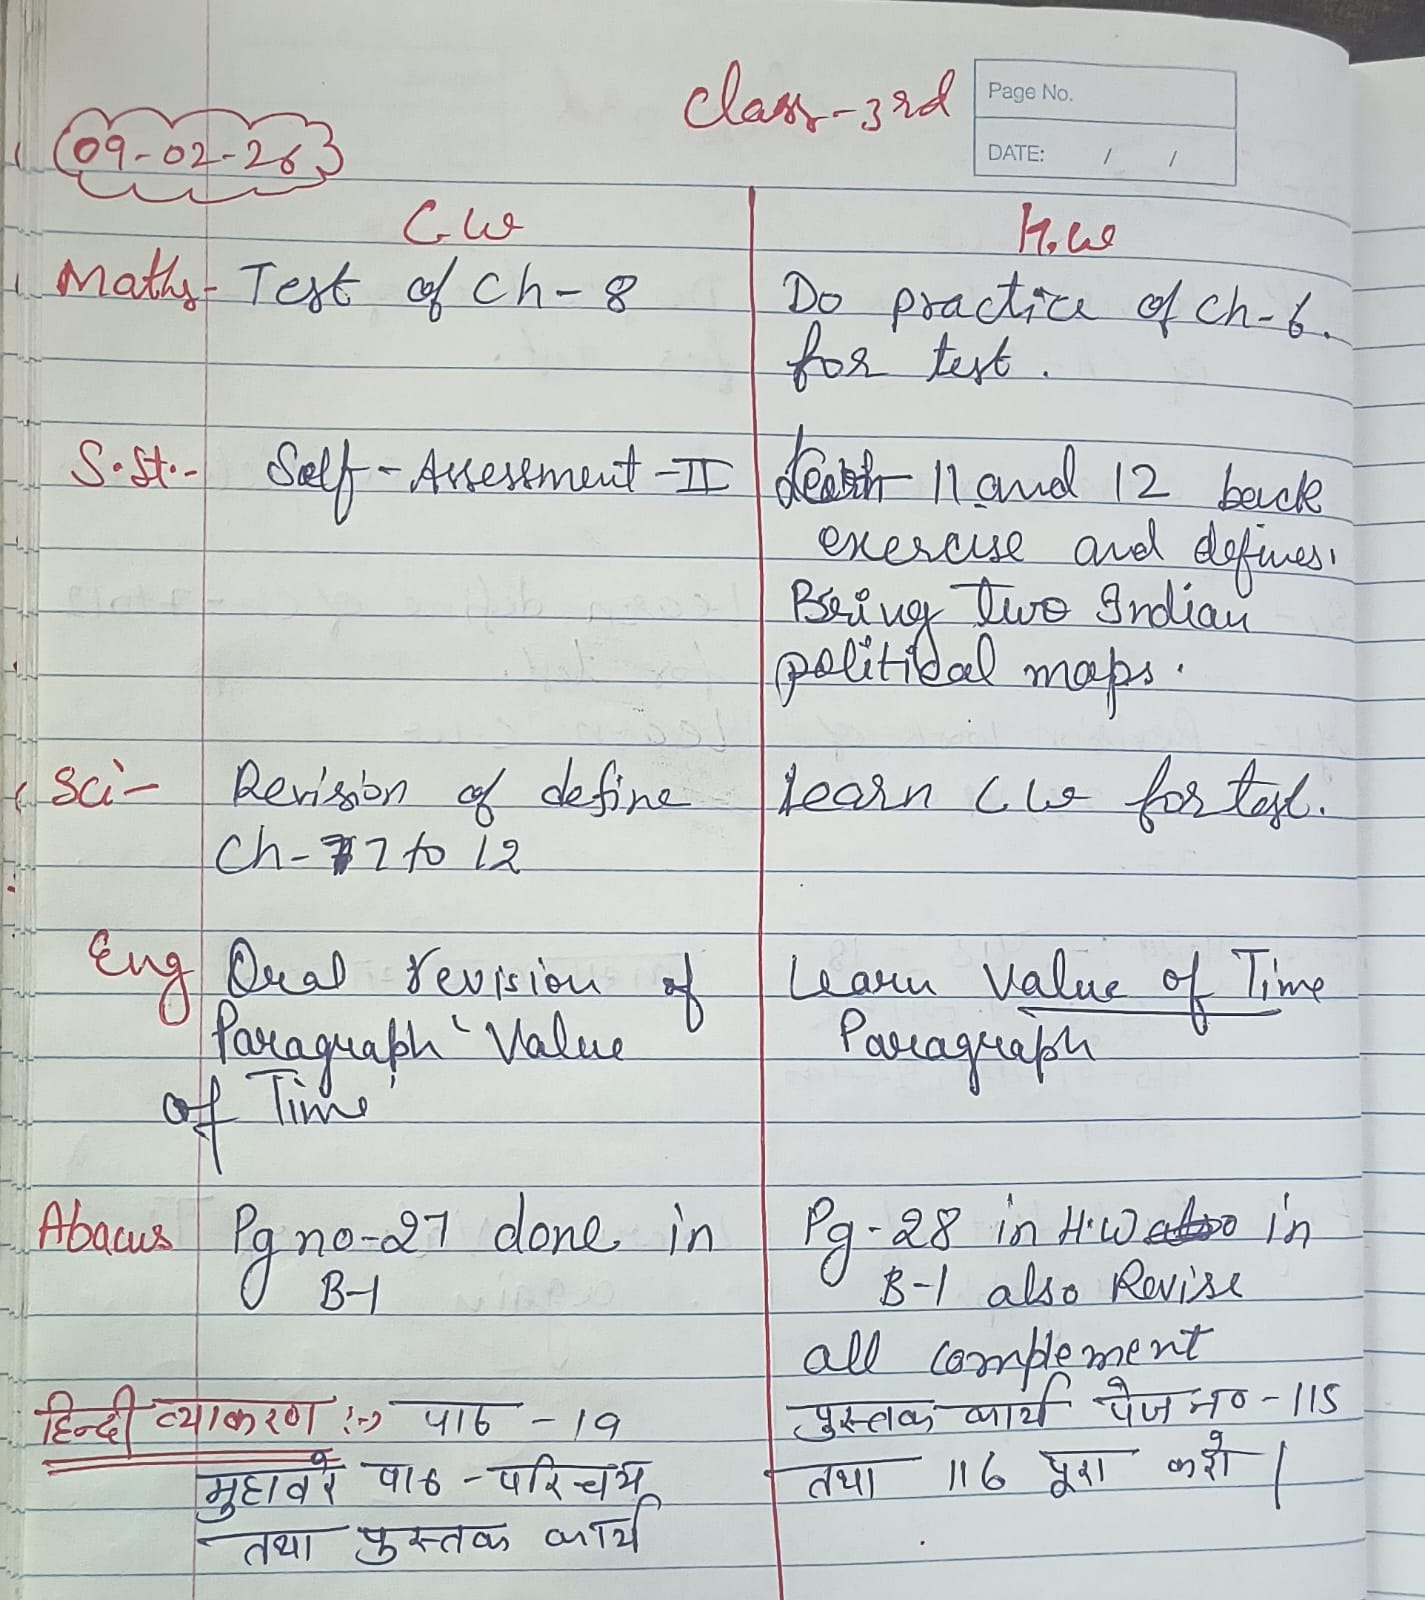 Class-3rd
Page No.
DATE: / /
09-02-26
C.W
H.W
Maths- Test of Ch-8
Do practice of Ch-6.
for test.
S.St.- Self-Assessment-II
11 and 12 back
exercise and defines.
Bring two Indian
political maps.
Sci- Revision of define
Ch-7 to 12
Learn C W for test.
Eng Oral revision of
Paragraph 'Value
of Time'
Learn Value of Time
Paragraph
Abacus Pg no-27 done in
B-1
Pg-28 in H.W in
B-1 also Revise
all complement
हिन्दी व्याकरण :-> पाठ -19
मुहावरे पाठ -परिचय
तथा पुस्तक कार्य
पुस्तक कार्य पेज न०-115
तथा 116 पूरा करो।